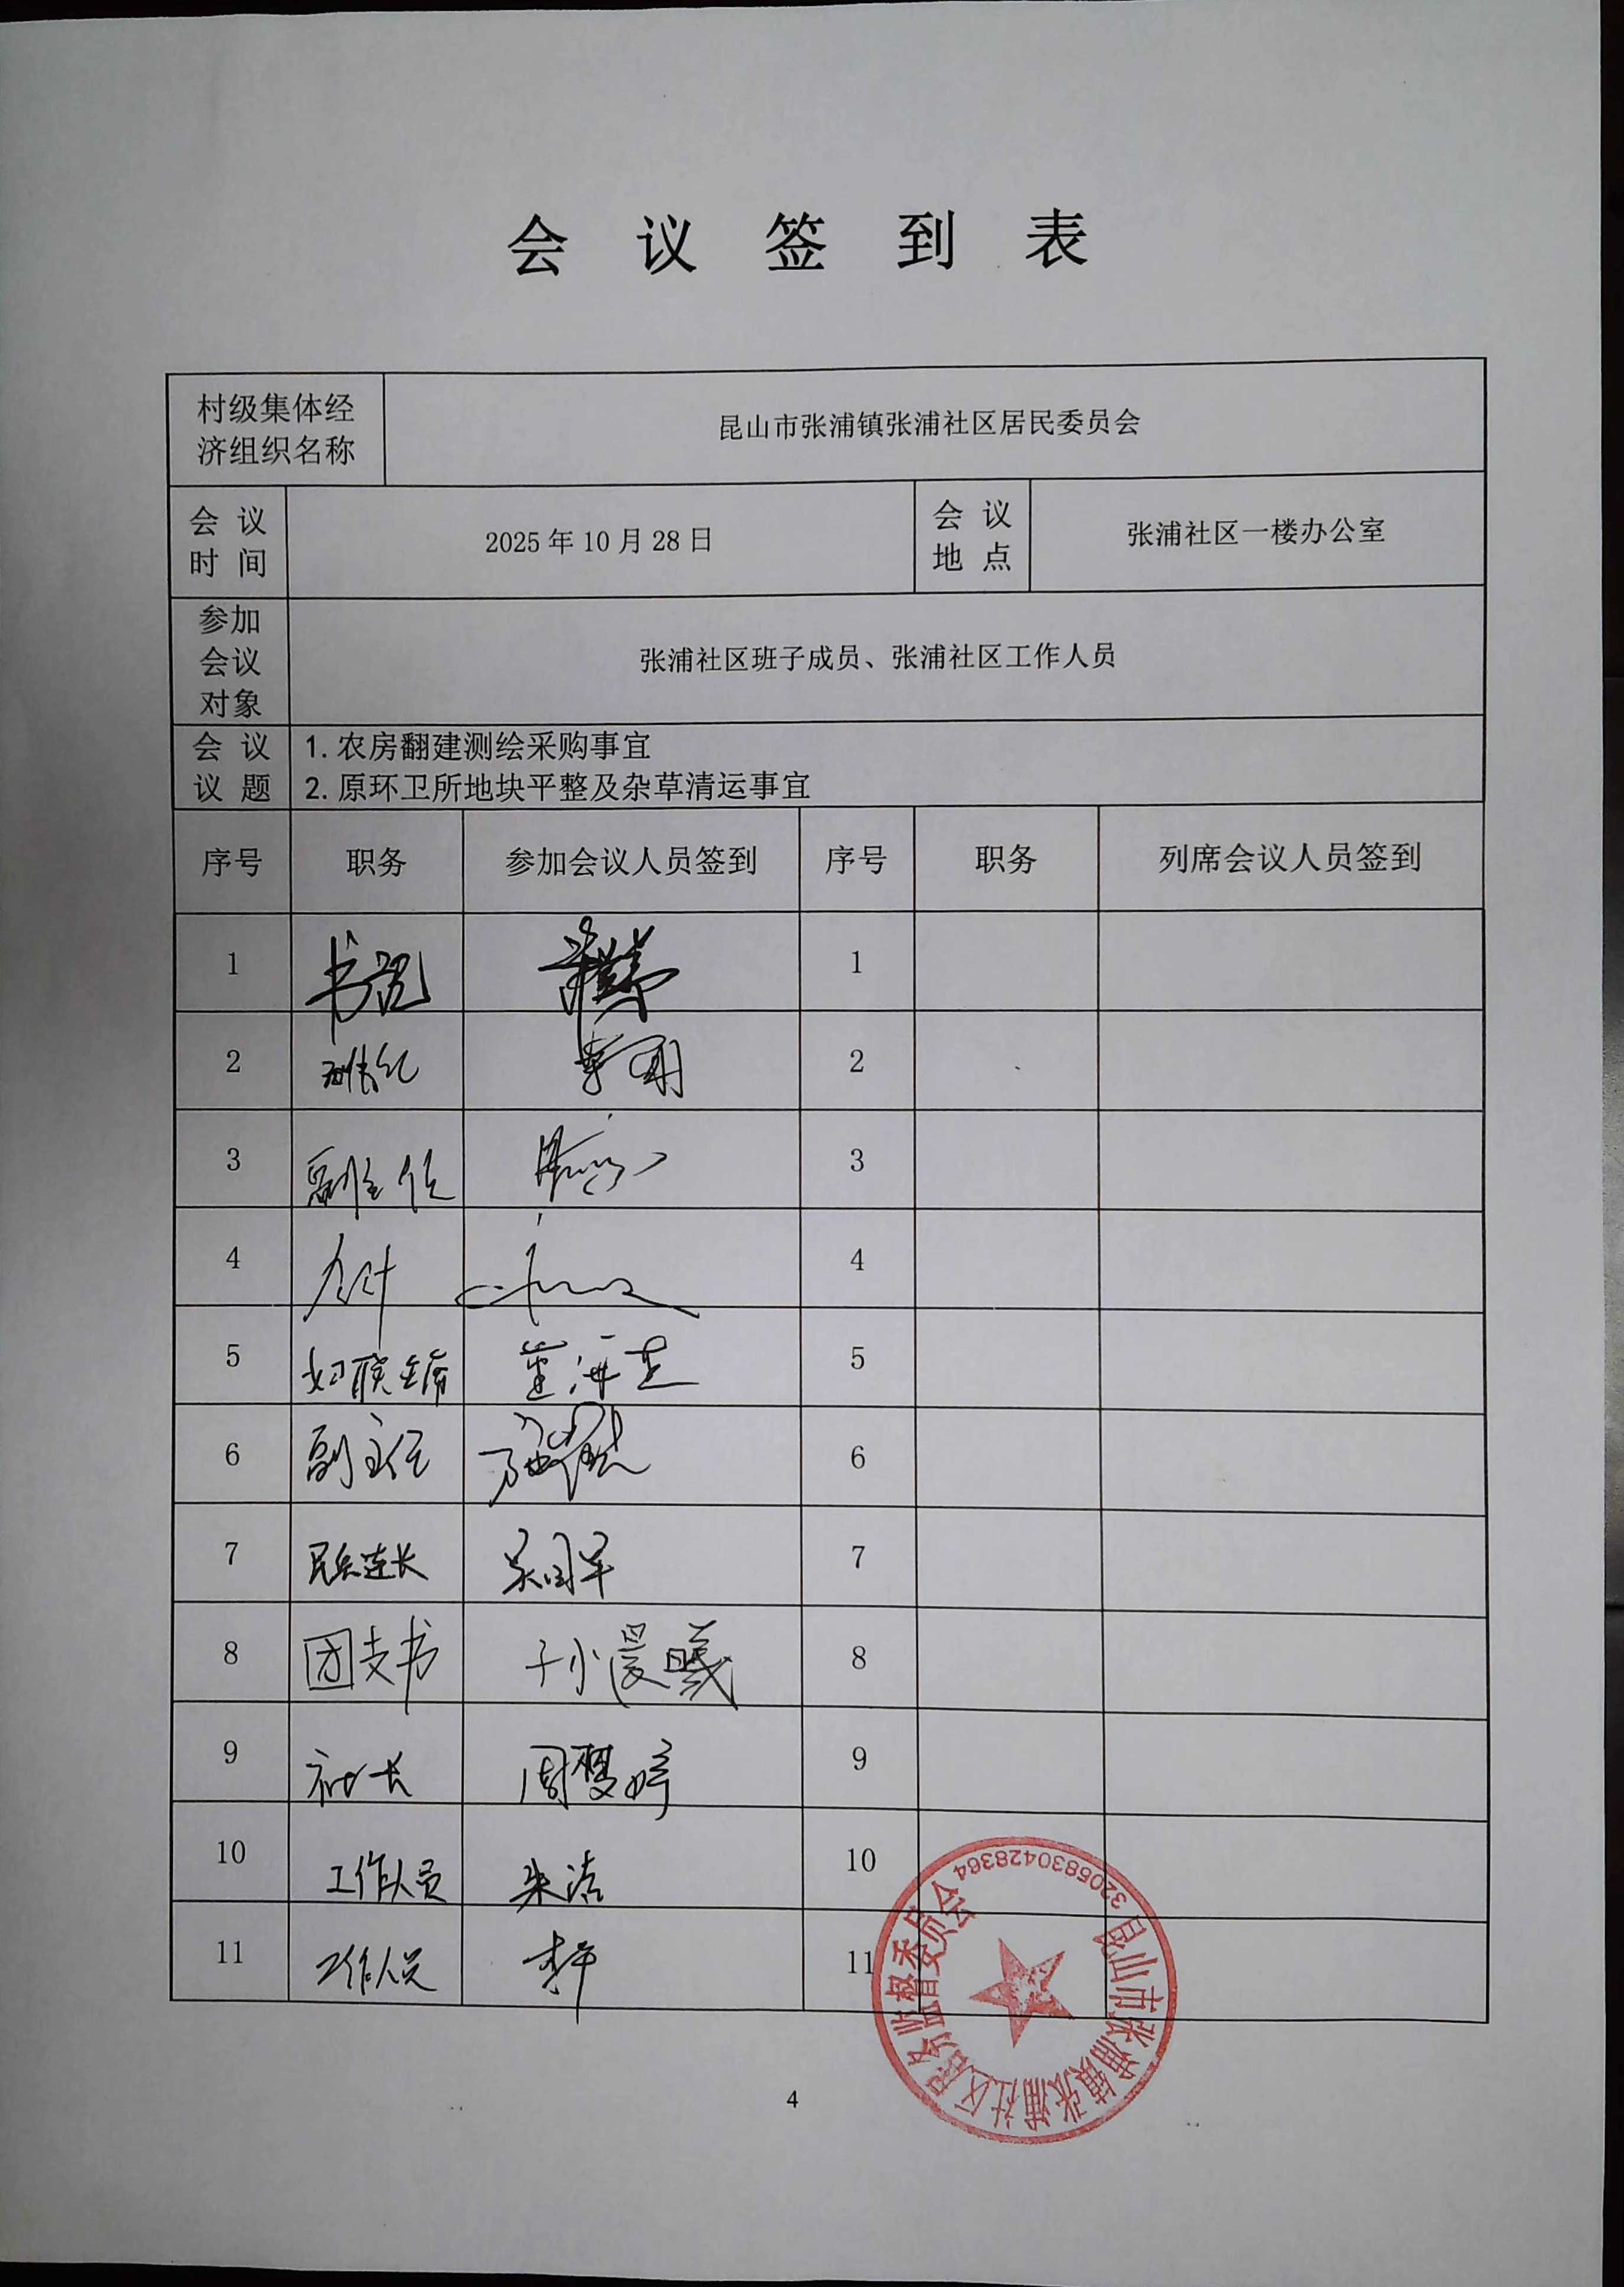 会议签到表
村级集体经
济组织名称
昆山市张浦镇张浦社区居民委员会
会议
时间
2025年10月28日
会议
地点
张浦社区一楼办公室
参加
会议
对象
张浦社区班子成员、张浦社区工作人员
会议
议题
1.农房翻建测绘采购事宜
2.原环卫所地块平整及杂草清运事宜
序号 职务 参加会议人员签到 序号 职务 列席会议人员签到
1 书记 1
2 2
3 副主任 3
4 会计 4
5 妇联主席 5
6 副主任 6
7 民兵连长 吴国军 7
8 团支书 孙晨曦 8
9 社长 周梦婷 9
10 工作人员 朱洁 10
11 工作人员 李平 11
昆山市张浦镇张浦社区居务监督委员会
3205830428364
4